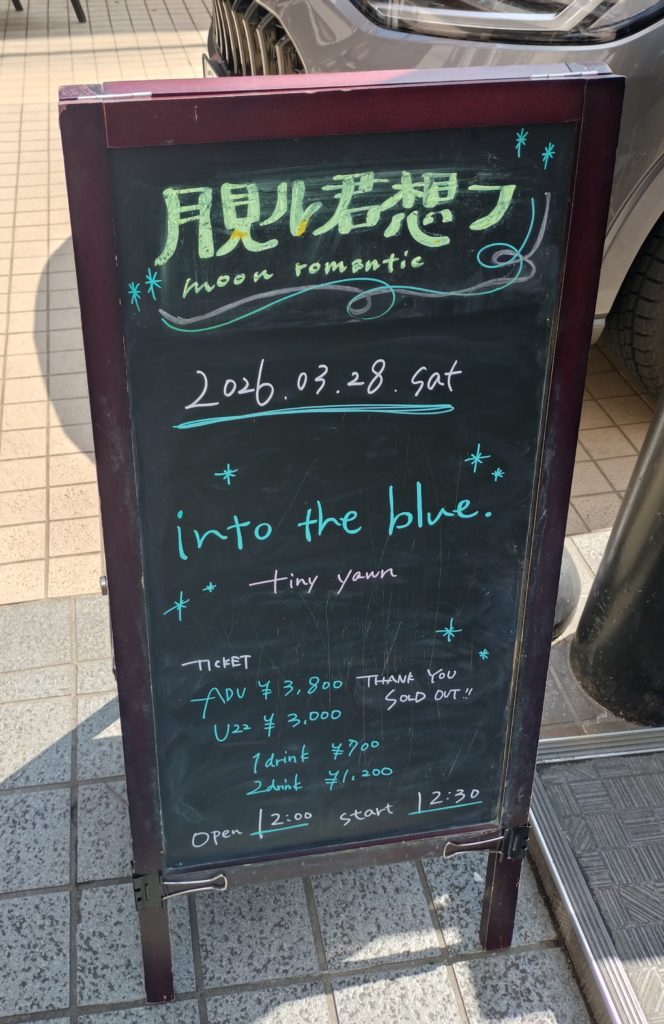 月見ル君想フ
moon romantic
2026.03.28.sat
into the blue.
tiny yawn
TICKET
ADV ¥3,800
U22 ¥3,000
THANK YOU
SOLD OUT!!
1drink ¥700
2drink ¥1,200
open 12:00 start 12:30